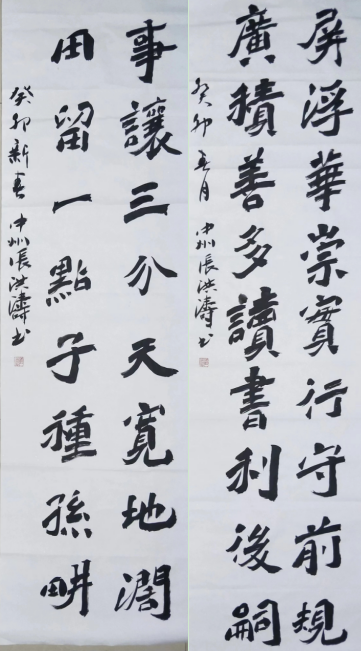 屏浮華崇實行守前規
廣積善多讀書利後嗣
癸卯春月 中州張洪濤書
事讓三分天寬地濶
田留一點子種孫畊
癸卯新春 中州張洪濤書